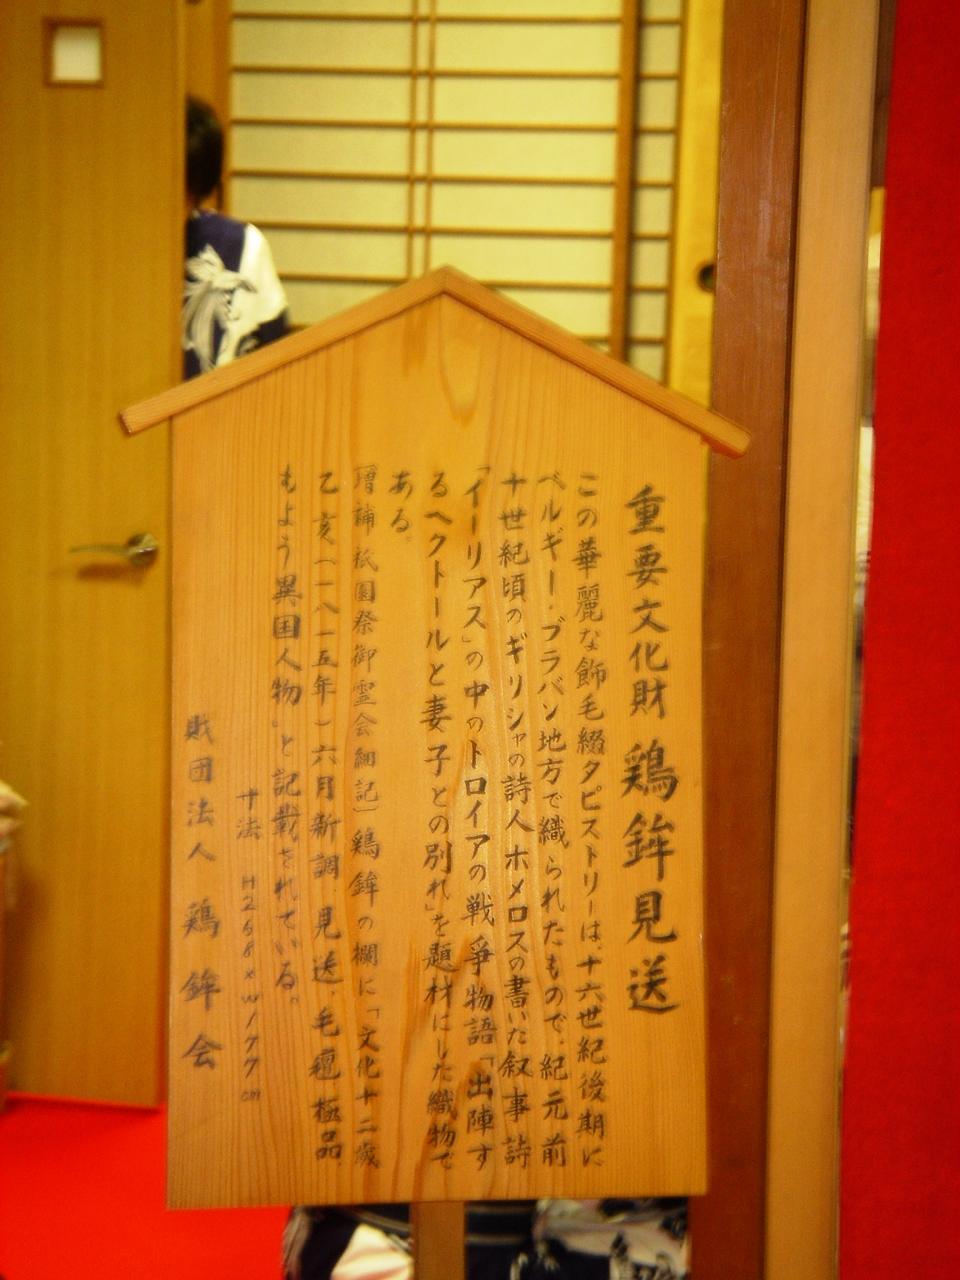 重要文化財 鶏鉾見送
この華麗な飾毛綴タピストリーは、十六世紀後期に
ベルギー・ブラバン地方で織られたもので、紀元前
十世紀頃のギリシャの詩人ホメロスの書いた叙事詩
「イーリアス」の中のトロイアの戦争物語「出陣す
るヘクトールと妻子との別れ」を題材にした織物で
ある。
増補祇園祭御霊会細記」鶏鉾の欄に「文化十二歳
乙亥(一八一五年)六月新調、見送、毛氈極品、
もよう異国人物」と記載されている。
寸法 H268×W177cm
財団法人 鶏鉾会